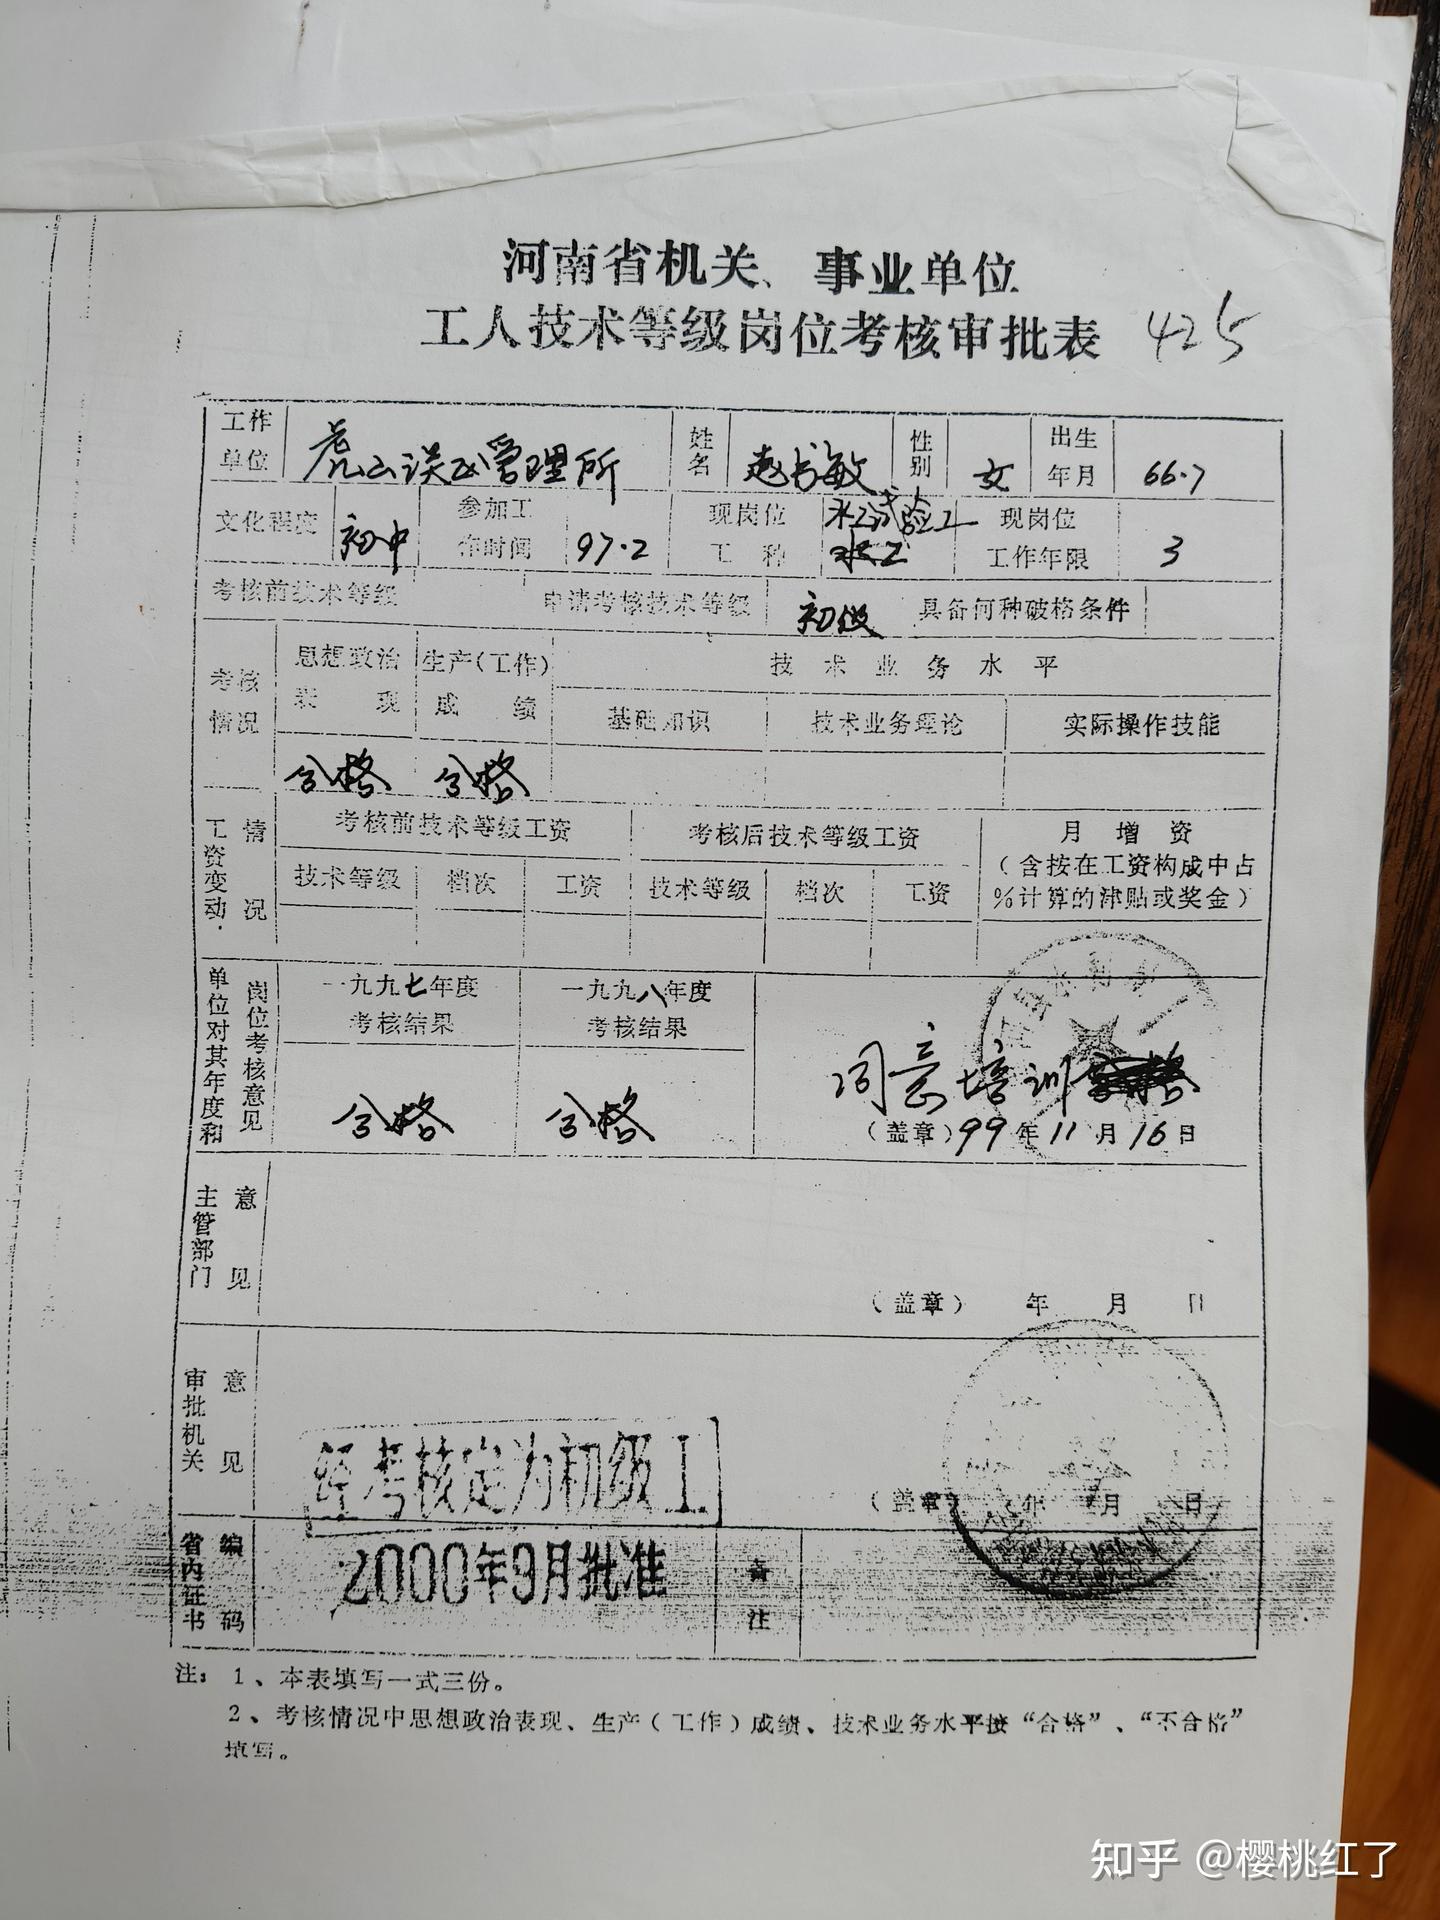 河南省机关、事业单位
工人技术等级岗位考核审批表 425
工作单位 管理所 姓名 赵书敏 性别 女 出生年月 66.7
文化程度 初中 参加工作时间 97.2 现岗位工种 水工试验工 水工 现岗位工作年限 3
考核前技术等级 申请考核技术等级 初级 具备何种破格条件
考核情况 思想政治表现 生产(工作)成绩 技术业务水平
基础知识 技术业务理论 实际操作技能
合格 合格
工资变动情况 考核前技术等级工资 考核后技术等级工资 月增资
(含按在工资构成中占%计算的津贴或奖金)
技术等级 档次 工资 技术等级 档次 工资
单位对其年度和岗位考核意见 一九九七年度考核结果 一九九八年度考核结果
合格 合格 同意培训
(盖章)99年11月16日
主管部门意见
(盖章) 年 月 日
审批机关意见
经考核定为初级工
(盖章) 年 月 日
省内证书编码 2000年9月批准 备注
注：1、本表填写一式三份。
2、考核情况中思想政治表现、生产(工作)成绩、技术业务水平按“合格”、“不合格”
填写。
知乎 @樱桃红了